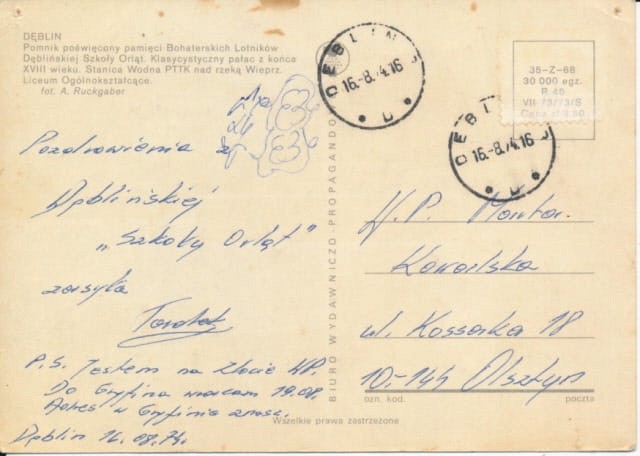 DĘBLIN
Pomnik poświęcony pamięci Bohaterskich Lotników
Dęblińskiej Szkoły Orląt. Klasycystyczny pałac z końca
XVIII wieku. Stanica Wodna PTTK nad rzeką Wieprz.
Liceum Ogólnokształcące.
fot. A. Ruckgaber
Pozdrowienia z
Dęblińskiej
„Szkoły Orląt"
zasyła
P.S. Jestem na Zlocie HP.
Do Gryfina wracam 19.08.
Adres w Gryfinie znasz.
Dęblin 16.08.74r.
BIURO WYDAWNICZO-PROPAGANDOWE
DĘBLIN
16.-8.74.16
35-Z-68
30 000 egz.
R 46
VII-73/73/S
Cena zł
DĘBLIN
16.-8.74.16
W.P.
Kowalska
ul. Kossaka 18
10-144 Olsztyn
ozn. kod. poczta
Wszelkie prawa zastrzeżone